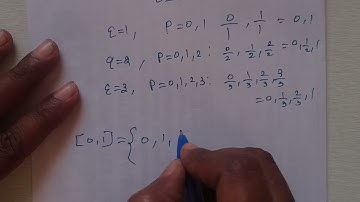 q=1, P=0,1 0/1, 1/1 = 0,1
q=2, P=0,1,2: 0/2, 1/2, 2/2 = 0,1/2,1
q=3, P=0,1,2,3: 0/3, 1/3, 2/3, 3/3
=0,1/3,2/3,1
[0,1]={0,1,